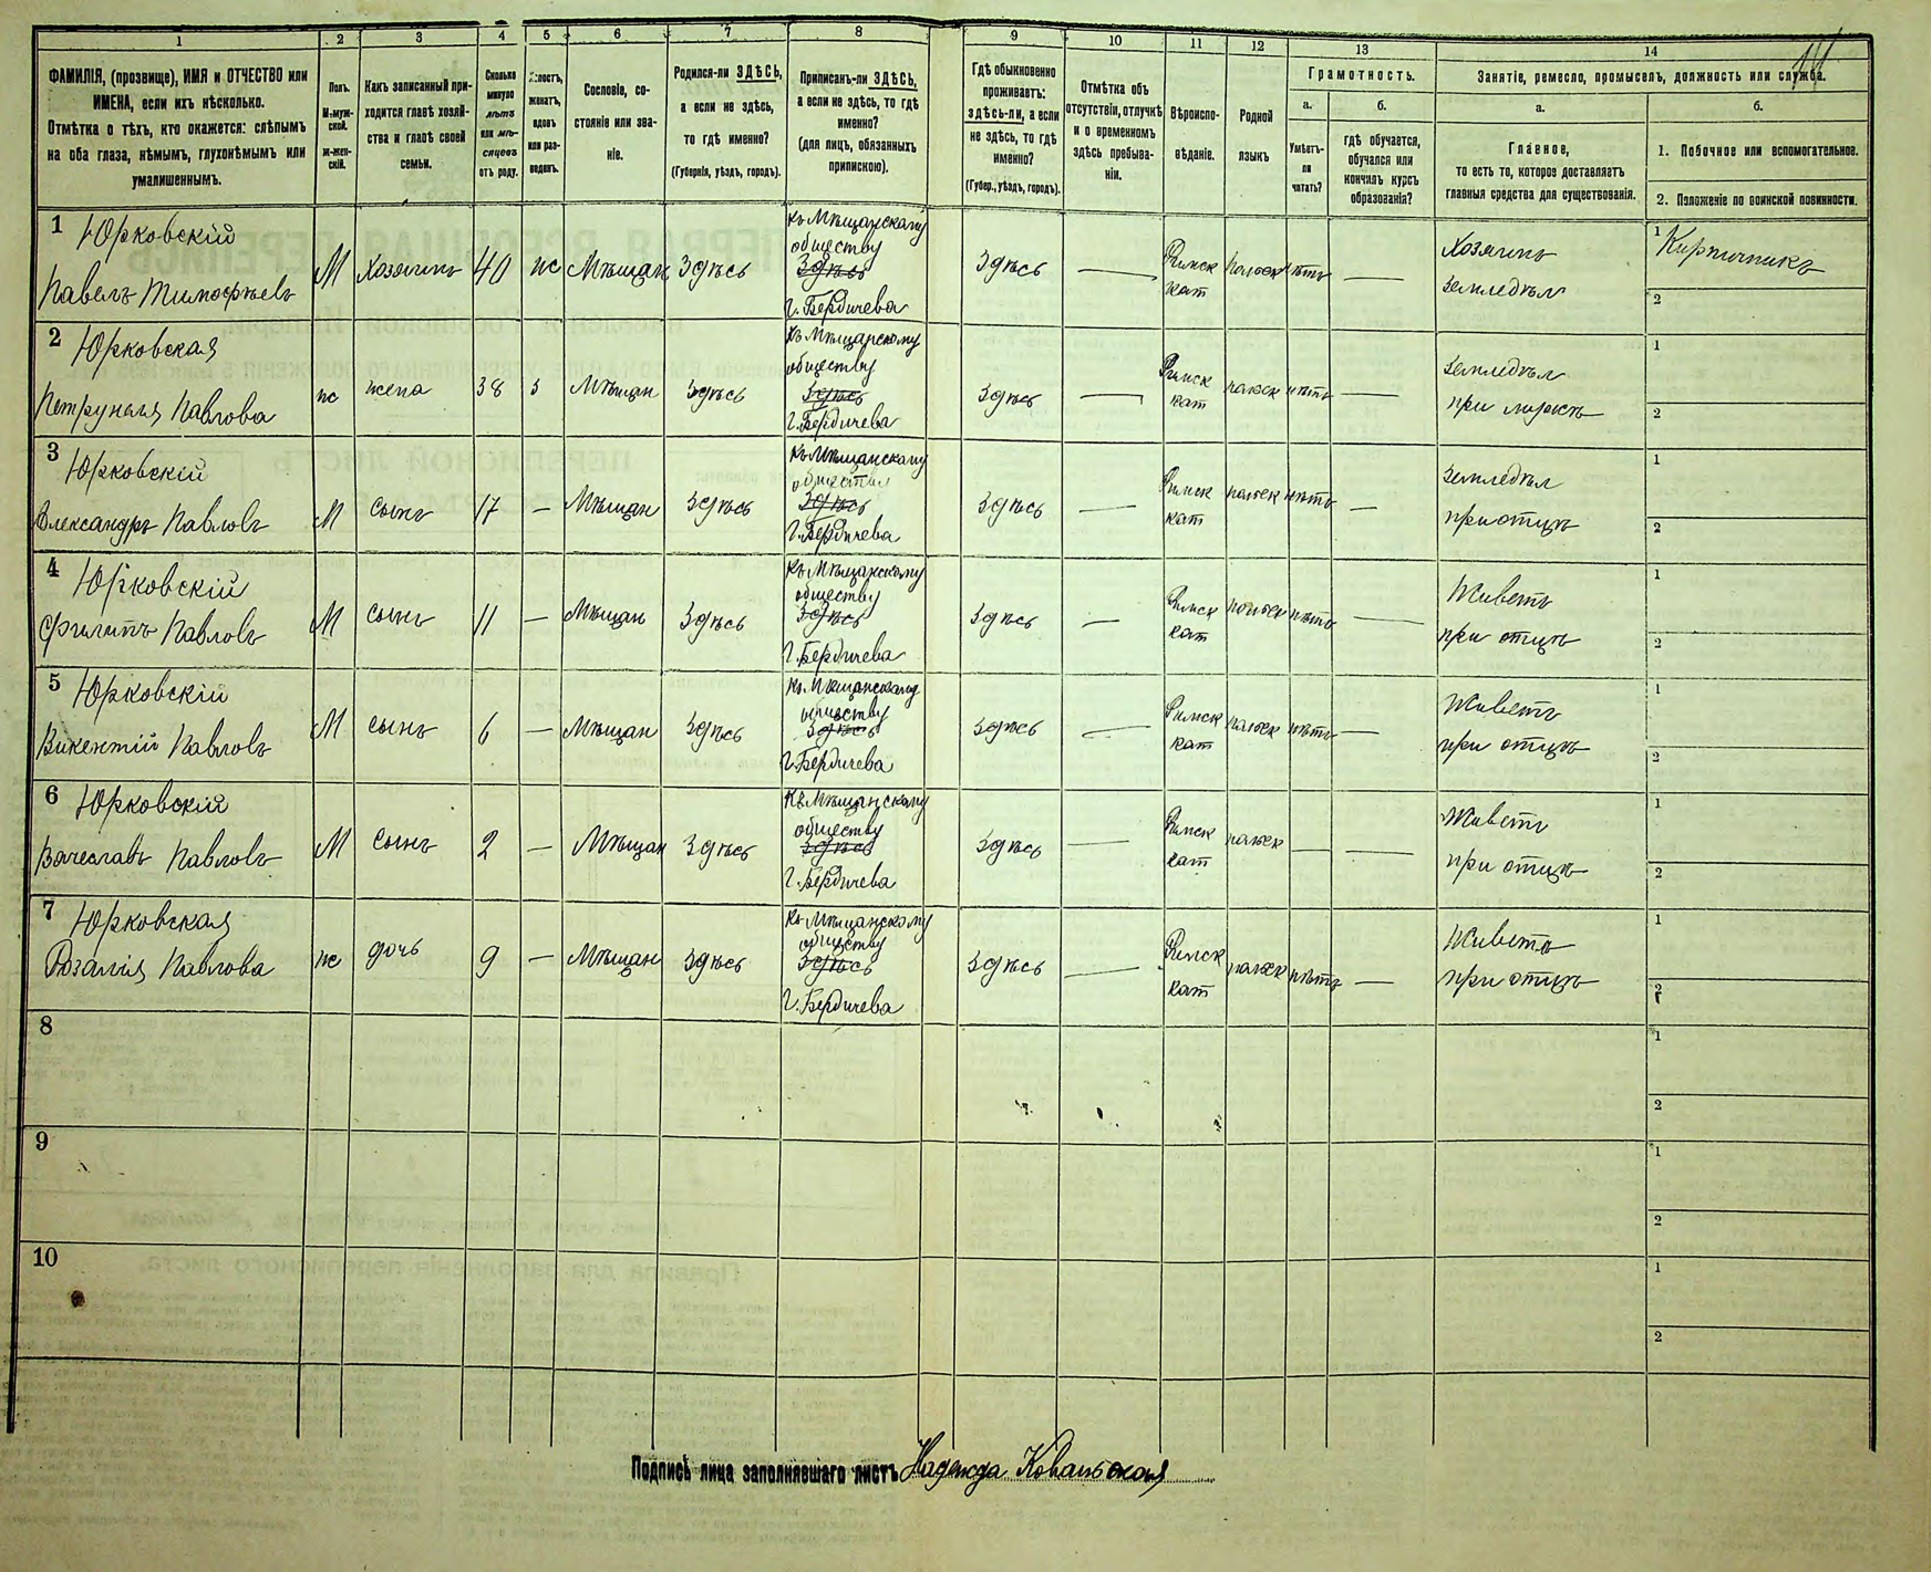 1 2 3 4 5 6 7 8 9 10 11 12 13 14
ФАМИЛІЯ, (прозвище), ИМЯ и ОТЧЕСТВО или
ИМЕНА, если ихъ нѣсколько.
Отмѣтка о тѣхъ, кто окажется: слѣпымъ
на оба глаза, нѣмымъ, глухонѣмымъ или
умалишеннымъ.
Полъ.
М-муж-
ской.
Ж-жен-
скій.
Какъ записанный при-
ходится главѣ хозяй-
ства и главѣ своей
семьи.
Сколько
минуло
лѣтъ
или мѣ-
сяцевъ
отъ роду.
Холостъ,
женатъ,
вдовъ
или раз-
веденъ.
Сословіе, со-
стояніе или зва-
ніе.
Родился-ли ЗДѢСЬ,
а если не здѣсь,
то гдѣ именно?
(Губернія, уѣздъ, городъ).
Приписанъ-ли ЗДѢСЬ,
а если не здѣсь, то гдѣ
именно?
(для лицъ, обязанныхъ
припискою).
Гдѣ обыкновенно
проживаетъ:
здѣсь-ли, а если
не здѣсь, то гдѣ
именно?
(Губер., уѣздъ, городъ).
Отмѣтка объ
отсутствіи, отлучкѣ
и о временномъ
здѣсь пребыва-
ніи.
Вѣроиспо-
вѣданіе.
Родной
языкъ
Грамотность.
а.
Умѣетъ-
ли
читать?
б.
гдѣ обучается,
обучался или
кончилъ курсъ
образованія?
Занятіе, ремесло, промыселъ, должность или служба.
а.
Главное,
то есть то, которое доставляетъ
главныя средства для существованія.
б.
1. Побочное или вспомогательное.
2. Положеніе по воинской повинности.
1 Юрковскій
Павелъ Тимофѣевъ
М Хозяинъ 40 ж Мѣщан Здѣсь
Къ Мѣщанскому
обществу
Здѣсь
г. Бердичева
Здѣсь —
Римск
кат
польск нѣтъ —
Хозяинъ
земледѣл
1 Кирпичникъ
2
2 Юрковская
Петрунеля Павлова
ж жена 38 з Мѣщан Здѣсь
Къ Мѣщанскому
обществу
Здѣсь
г. Бердичева
Здѣсь —
Римск
кат
польск нѣтъ —
Земледѣл
при мужѣ
1
2
3 Юрковскій
Александръ Павловъ
М сынъ 17 — Мѣщан Здѣсь
Къ Мѣщанскому
общество
Здѣсь
г. Бердичева
Здѣсь —
Римск
кат
польск нѣтъ —
Земледѣл
при отцѣ
1
2
4 Юрковскій
Филипъ Павловъ
М сынъ 11 — Мѣщан Здѣсь
Къ Мѣщанскому
обществу
Здѣсь
г. Бердичева
Здѣсь —
Римск
кат
польск нѣтъ —
Живетъ
при отцѣ
1
2
5 Юрковскій
Викентій Павловъ
М сынъ 6 — Мѣщан Здѣсь
Къ Мѣщанскому
обществу
Здѣсь
г. Бердичева
Здѣсь —
Римск
кат
польск нѣтъ —
Живетъ
при отцѣ
1
2
6 Юрковскій
Вячеславъ Павловъ
М сынъ 2 — Мѣщан Здѣсь
Къ Мѣщанскому
обществу
Здѣсь
г. Бердичева
Здѣсь —
Римск
кат
польск — —
Живетъ
при отцѣ
1
2
7 Юрковская
Розалія Павлова
ж дочь 9 — Мѣщан Здѣсь
Къ Мѣщанскому
обществу
Здѣсь
г. Бердичева
Здѣсь —
Римск
кат
польск нѣтъ —
Живетъ
при отцѣ
2
8
1
2
9
1
2
10
1
2
Подпись лица заполнявшаго листъ Надежда Ковальская